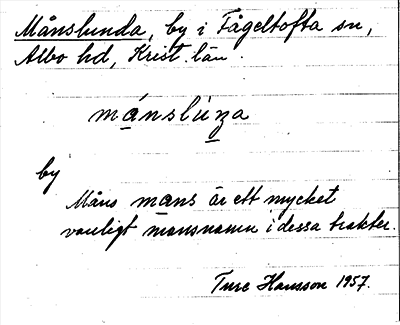 Månslunda, by i Fågeltofta sn,
Albo hd, Krist. län.
mánslúna
by
Måns mans är ett mycket
vanligt mansnamn i dessa trakter.
Ture Hansson 1957.